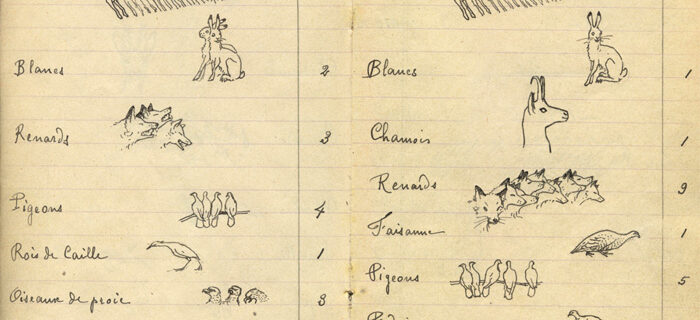 Blancs 2
Renards 3
Pigeons 4
Rois de Caille 1
Oiseaux de proie 3
Blancs 1
Chamois 1
Renards 9
Faisanne 1
Pigeons 5